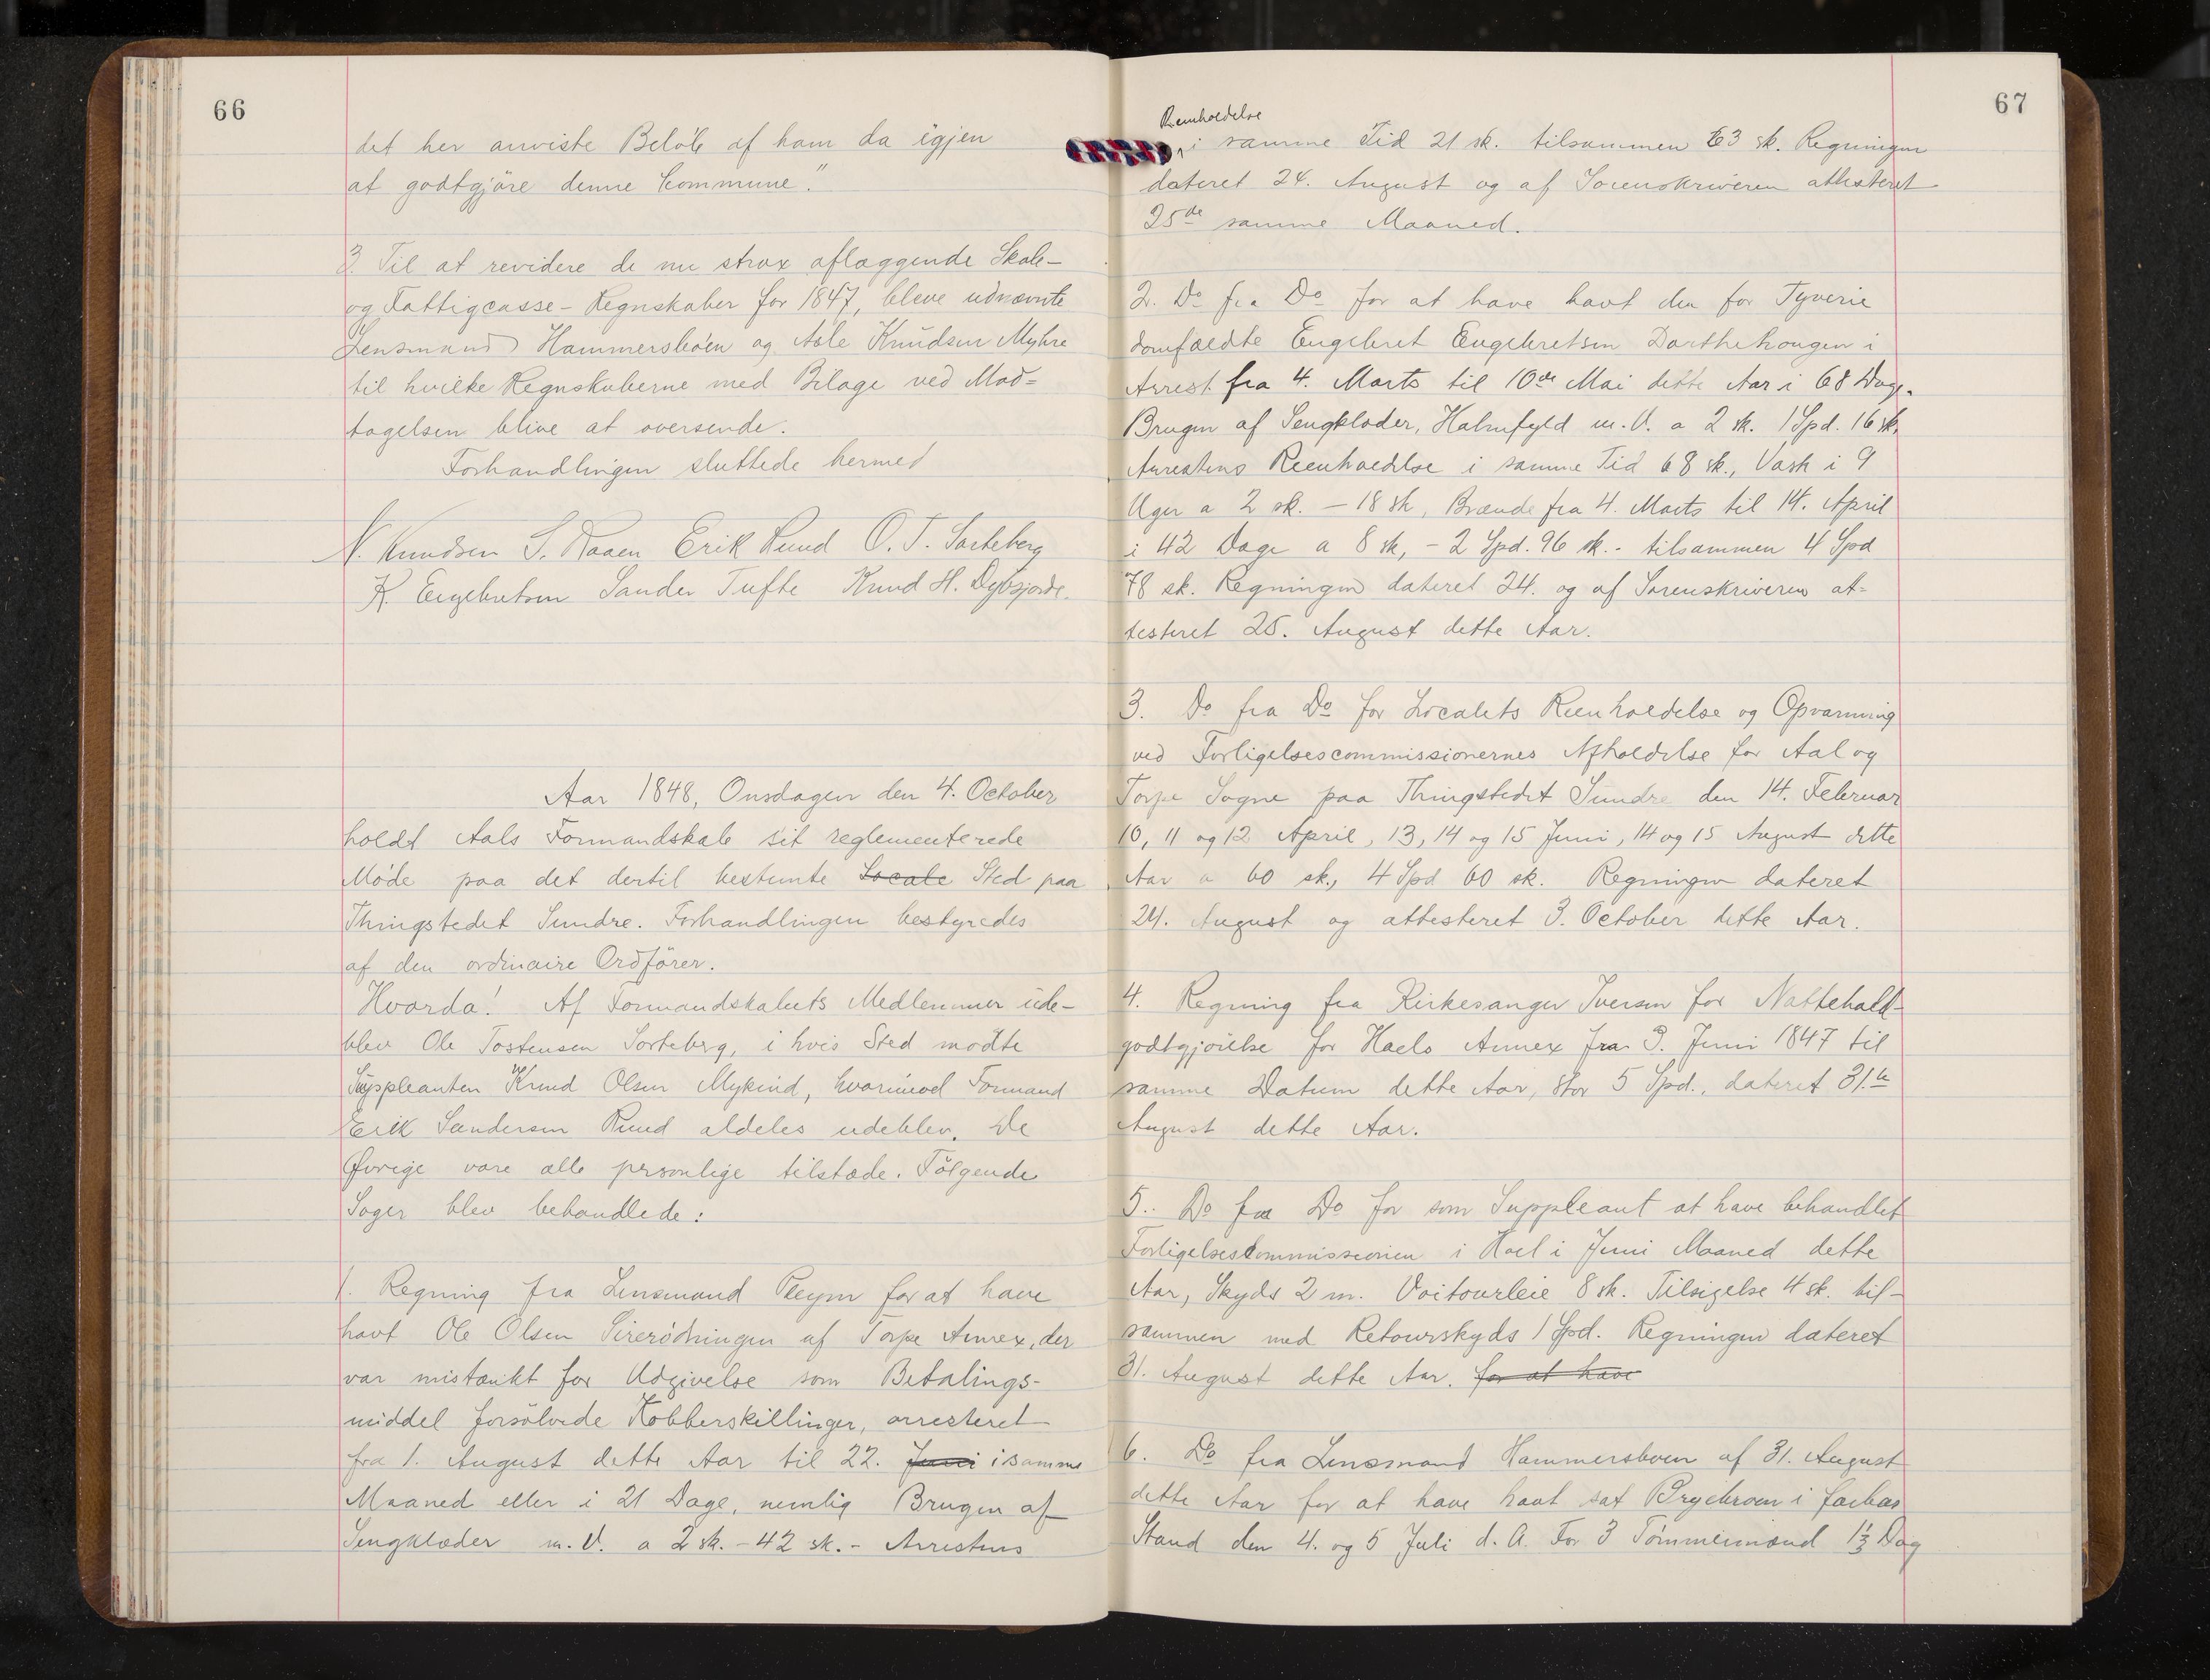 66
det her anviste Beløb af ham da igjen
at godtgjöre denne Commune."
3. Til at revidere de nu strax aflæggende Skole-
og Fattigcasse-Regnskaber for 1847, bleve udnævnte
Lensmand Hammersbøen og Asle Knudsen Myhre
til hvilke Regnskaberne med Bilage ved Mod=
tagelsen blive at oversende.
Forhandlingen sluttede hermed
N. Knudsen S. Raaen Erik Ruud O. T. Sorteberg
K. Engebretsen Sander Tufte Knud H. Dybsjorde.
Aar 1848, Onsdagen den 4. October
holdt Aals Formandskab sit reglementerede
Møde paa det dertil bestemte Locale Sted paa
Thingstedet Sundre. Forhandlingen bestyredes
af den ordinaire Ordförer.
Hvorda! Af Formandskabets Medlemmer ude-
blev Ole Tostensen Sorteberg, i hvis Sted mödte
Suppleanten Knud Olsen Mykind, hvorimod Formand
Erik Sandersen Ruud aldeles udeblev. De
Øvrige vare alle personlige tilstæde. Fölgende
Sager blev behandlede:
1. Regning fra Lensmand Pleym for at have
havt Ole Olsen af Torpe Annex, der
var mistænkt for Udgivelse som Betalings-
middel forsölvede Kobberskillinger, arresteret
fra 1. August dette Aar til 22. Juni i samme
Maaned eller i 21 Dage, nemlig Brugen af
Sengklæder m. V. a 2 sk. - 42 sk. - Arrestens
67
Reenholdelse
i samme Tid 21 sk. tilsammen 63 sk. Regningen
dateret 24. August og af Sorenskriveren attesteret
25de samme Maaned.
2. Do fra Do for at have havt den for Tyverie
domfældte Engebret Engebretsen Dorthehougen i
Arrest fra 4. Marts til 10de Mai dette Aar i 68 Dage.
Brugen af Sengklæder, Halmfyld m. V. a 2 sk. 1 Spd. 16 sk.
Arrestens Reenholdelse i samme Tid 68 sk., Vask i 9
Uger a 2 sk. - 18 sk, Brænde fra 4. Marts til 14. April
i 42 Dage a 8 sk, - 2 Spd. 96 sk. - tilsammen 4 Spd
78 sk. Regningen dateret 24. og af Sorenskriveren at=
testeret 25. August dette Aar.
3. Do fra Do for Localets Reenholdelse og Opvarming
ved Forligelsescommissionernes Afholdelse for Aal og
Torpe Sogne paa Thingstedet Sundre den 14. Februar
10, 11 og 12 April, 13, 14 og 15 Juni, 14 og 15 August dette
Aar a 60 sk., 4 Spd 60 sk. Regningen dateret
24. August og attesteret 3. October dette Aar.
4. Regning fra Kirkesanger Iversen for Nattehold-
godtgjörelse for Hoels Annex fra 3. Juni 1847 til
samme Datum dette Aar, stor 5 Spd., dateret 31.te
August dette Aar.
5. Do fra Do for som Suppleant at have behandlet
Forligelsescommissionen i Hoel i Juni Maaned dette
Aar, Skyds 2 m. Voitourleie 8 sk. Tilsigelse 4 sk. til-
sammen med Retourskyds 1 Spd. Regningen dateret
31. August dette Aar. for at have
6. Do fra Lensmand Hammersboen af 31. August
dette Aar for at have havt sat i farbar
Stand den 4. og 5 Juli d. A. For 3 Tömmermænd 1⅓ Dag